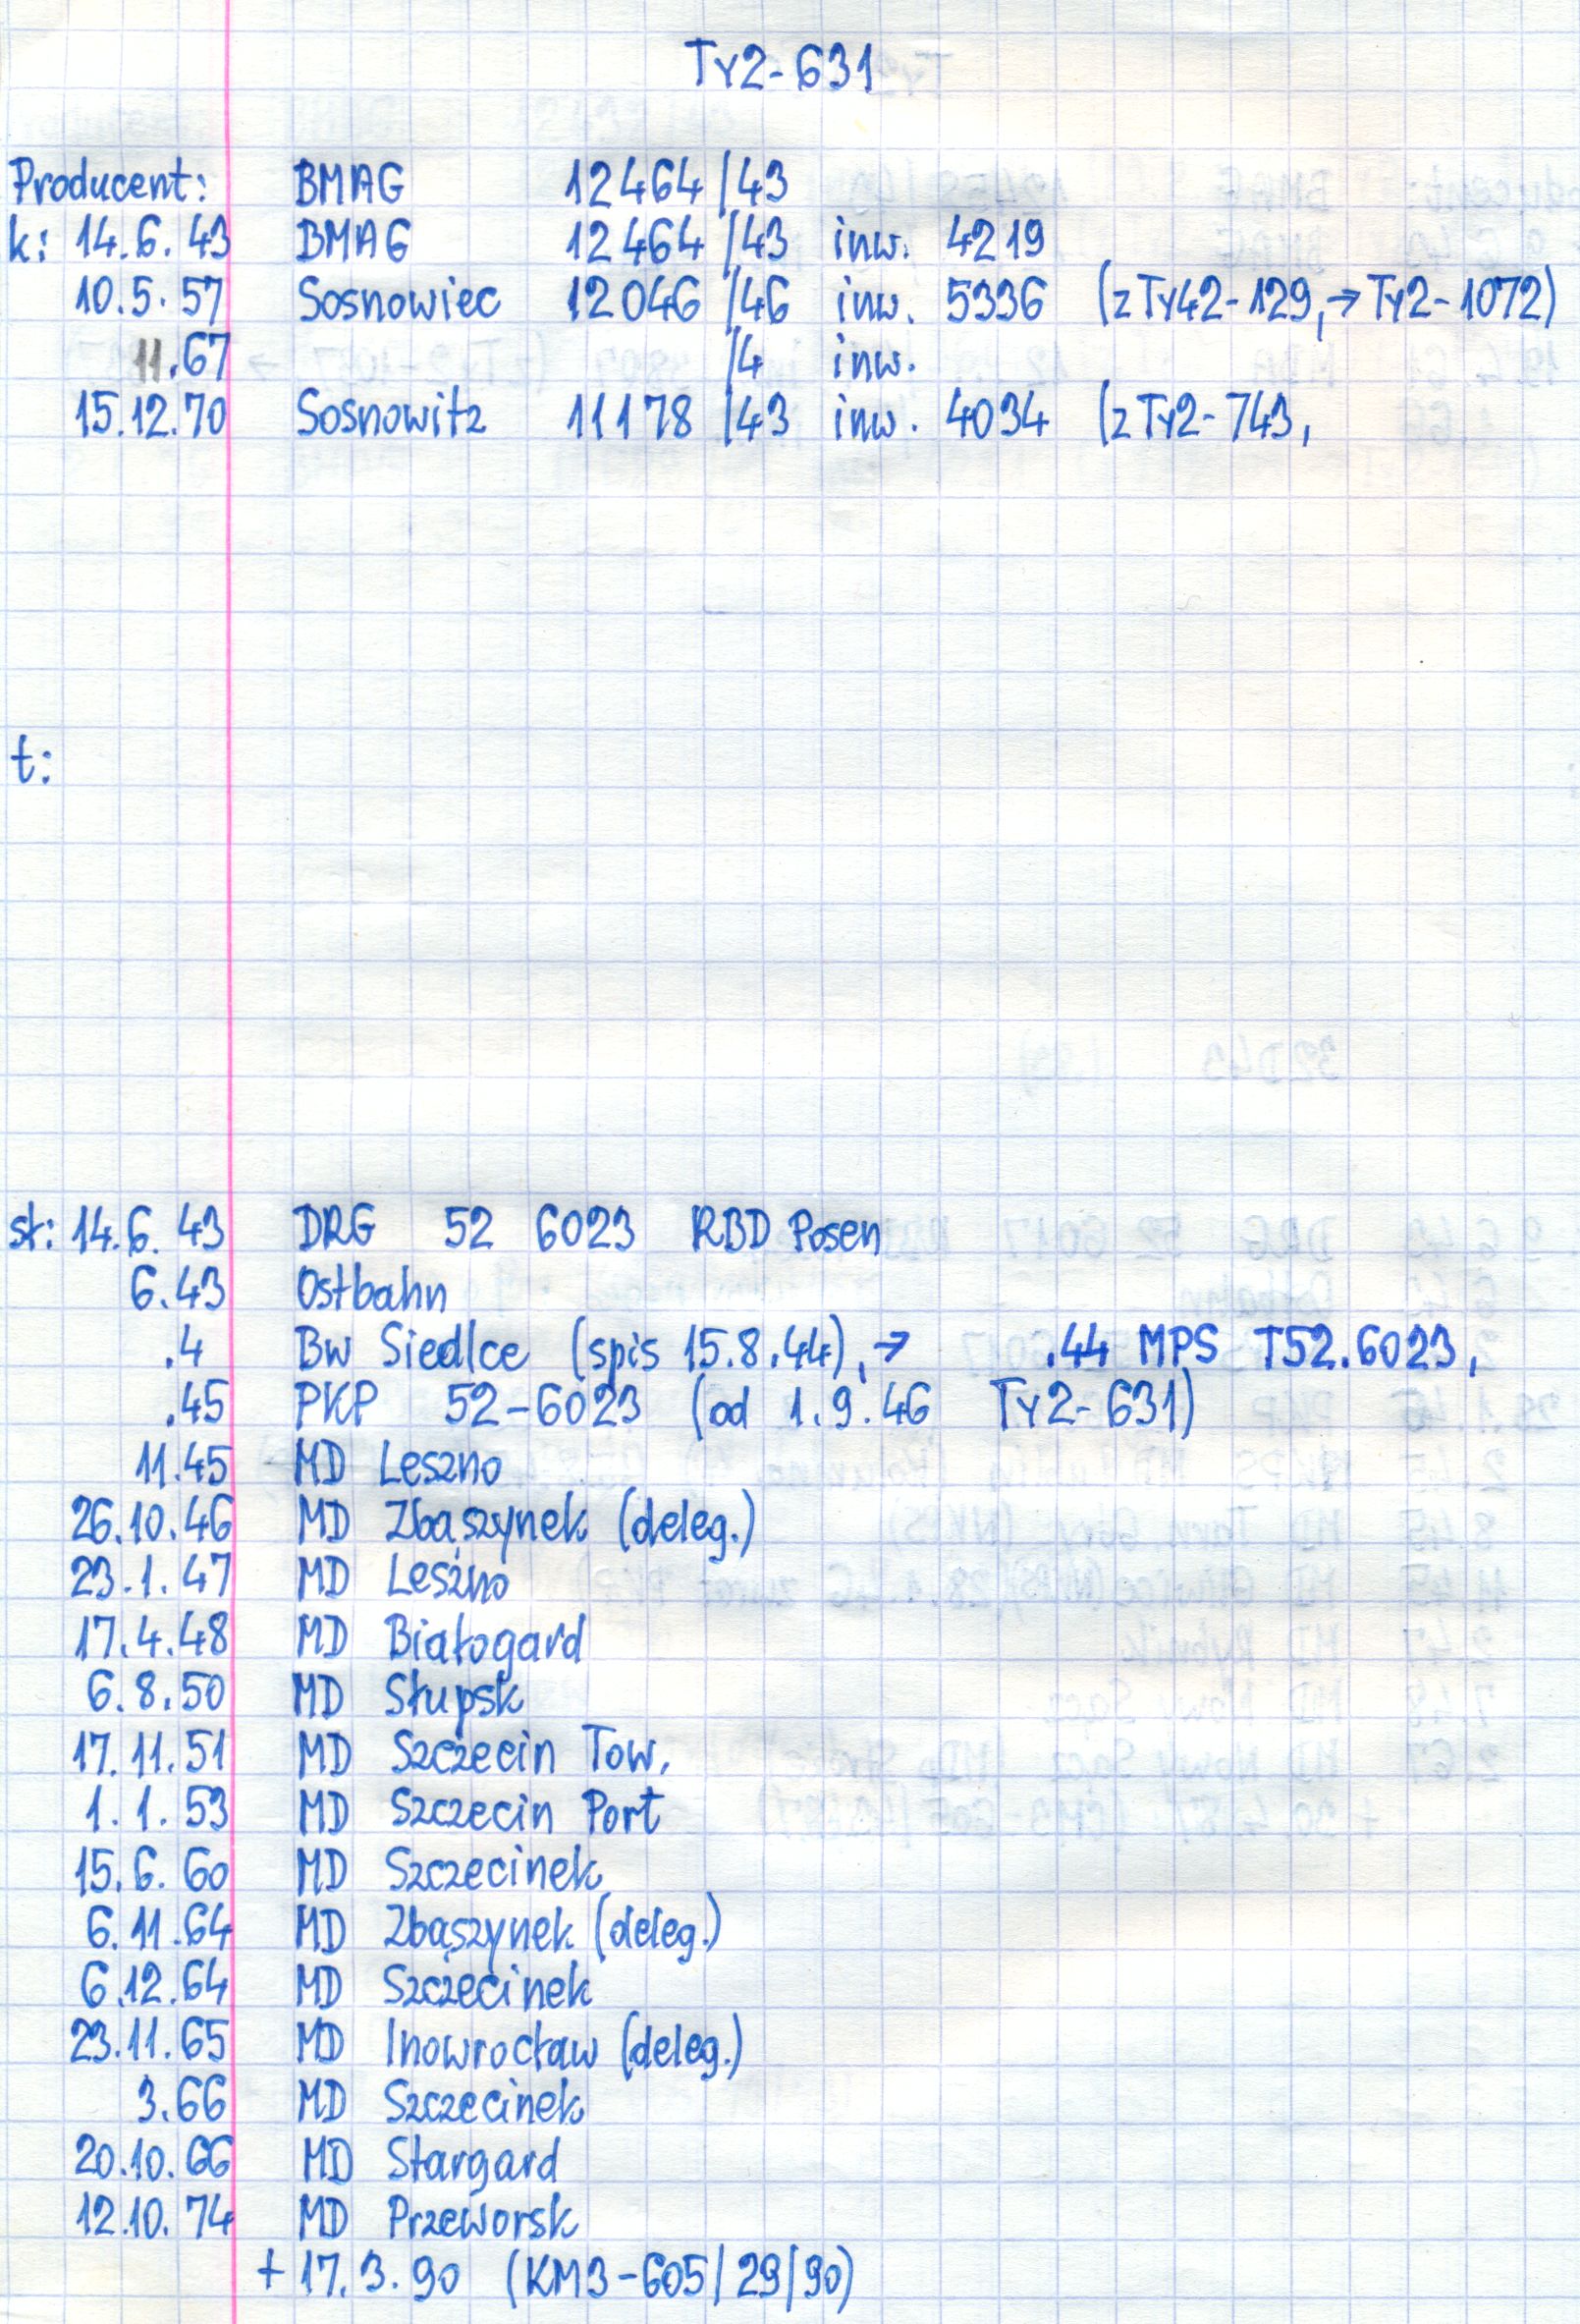 Ty2-631
Producent: BMAG 12464/43
k: 14.6.43 BMAG 12464/43 inw. 4219
10.5.57 Sosnowiec 12046/46 inw. 5336 (z Ty42-129, → Ty2-1072)
11.67 /4 inw.
15.12.70 Sosnowitz 11178/43 inw. 4034 (z Ty2-743,
t:
st: 14.6.43 DRG 52 6023 RBD Posen
6.43 Ostbahn
.4 Bw Siedlce (spis 15.8.44), → .44 MPS T52.6023,
.45 PKP 52-6023 (od 1.9.46 Ty2-631)
11.45 MD Leszno
26.10.46 MD Zbąszynek (deleg.)
23.1.47 MD Leszno
17.4.48 MD Białogard
6.8.50 MD Słupsk
17.11.51 MD Szczecin Tow.
1.1.53 MD Szczecin Port
15.6.60 MD Szczecinek
6.11.64 MD Zbąszynek (deleg.)
6.12.64 MD Szczecinek
23.11.65 MD Inowrocław (deleg.)
3.66 MD Szczecinek
20.10.66 MD Stargard
12.10.74 MD Przeworsk
+ 17.3.90 (KM3-605/29/90)